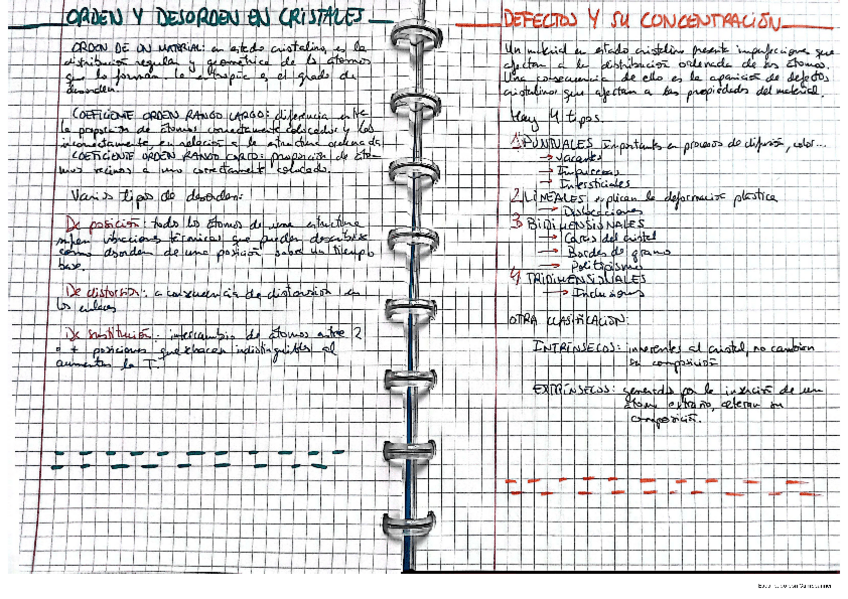 ORDEN Y DESORDEN EN CRISTALES
ORDEN DE UN MATERIAL: en estado cristalino, es la
distribución regular y geométrica de los átomos
que lo forman. La entropía es el grado de
desorden.
COEFICIENTE ORDEN RANGO LARGO: diferencia entre
la proporción de átomos correctamente colocados y los
incorrectamente, en relación a la estructura ordenada
COEFICIENTE ORDEN RANGO CORTO: proporción de áto-
mos vecinos a uno correctamente colocado.
Varios tipos de desorden:
De posición: todos los átomos de una estructura
sufren vibraciones térmicas que pueden describirse
como desorden de una posición sobre un tiempo
base.
De distorsión: a consecuencia de distorsión en
los enlaces
De sustitución: intercambio de átomos entre 2
o + posiciones que se hacen indistinguibles al
aumentar la T.
DEFECTOS Y SU CONCENTRACIÓN
Un material en estado cristalino presenta imperfecciones que
afectan a la distribución ordenada de sus átomos.
Una consecuencia de ello es la aparición de defectos
cristalinos que afectan a las propiedades del material.
Hay 4 tipos.
1 PUNTUALES Importantes en procesos de difusión, color...
→ Vacantes
→ Impurezas
→ Intersticiales
2 LINEALES explican la deformación plástica
→ Dislocaciones
3 BIDIMENSIONALES
→ Caras del cristal
→ Bordes de grano
→ Politipismo
4 TRIDIMENSIONALES
→ Inclusiones
OTRA CLASIFICACIÓN:
INTRÍNSECOS: inherentes al cristal, no cambian
su composición
EXTRÍNSECOS: generados por la inserción de un
átomo extraño, alteran su
composición.